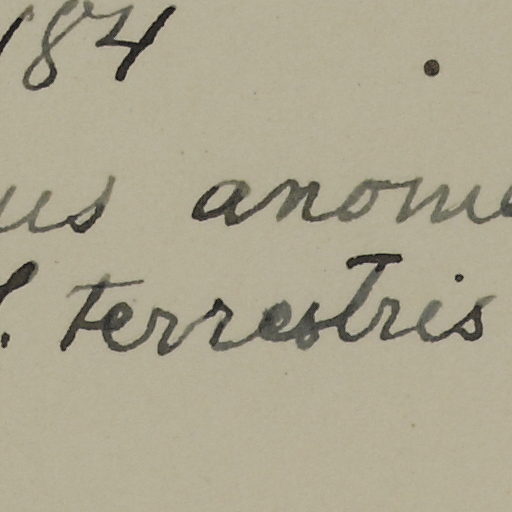 184 .
us anome
. terrestris